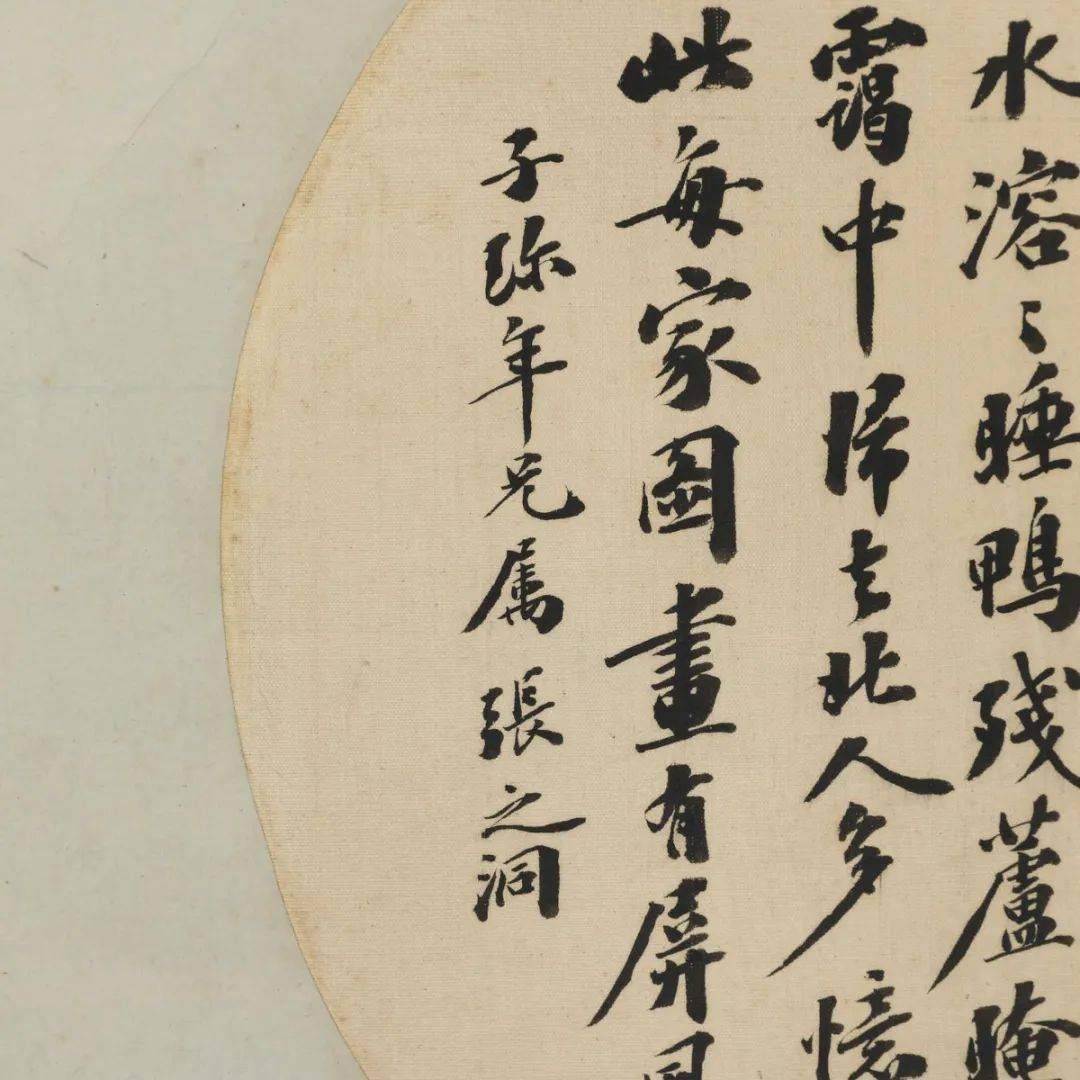 水溶〻睡鴨殘蘆晻
靄中歸去北人多憶
此每家圖畫有屏風
子弥年兄属 張之洞